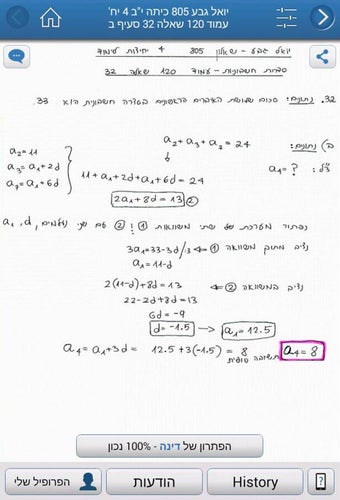 יואל גבע 805 כיתה י"ב 4 יח'
עמוד 120 שאלה 32 סעיף ב
יואל גבע - שאלון 805 4 יחידות לימוד
סדרות חשבוניות - עמוד 120 שאלה 32
32. נתונים: סכום שלושת האיברים הראשונים בסדרה חשבונית הוא 33.
ב) נתונים: a₂+a₃+a₇=24
צ"ל: a₄=?
a₂=11
a₃=a₁+2d
a₇=a₁+6d
11+a₁+2d+a₁+6d=24
2a₁+8d=13 ②
נפתור מערכת של שתי משוואות ① ו ② עם שני נעלמים, a₁, d
נציב מתוך משוואה ① 3a₁=33-3d /:3
a₁=11-d
נציב במשוואה ② 2(11-d)+8d=13
22-2d+8d=13
6d=-9
d=-1.5 → a₁=12.5
a₄=a₁+3d= 12.5+3(-1.5) = 8 תשובה סופית a₄=8
הפתרון של דינה - 100% נכון
הפרופיל שלי
הודעות
History